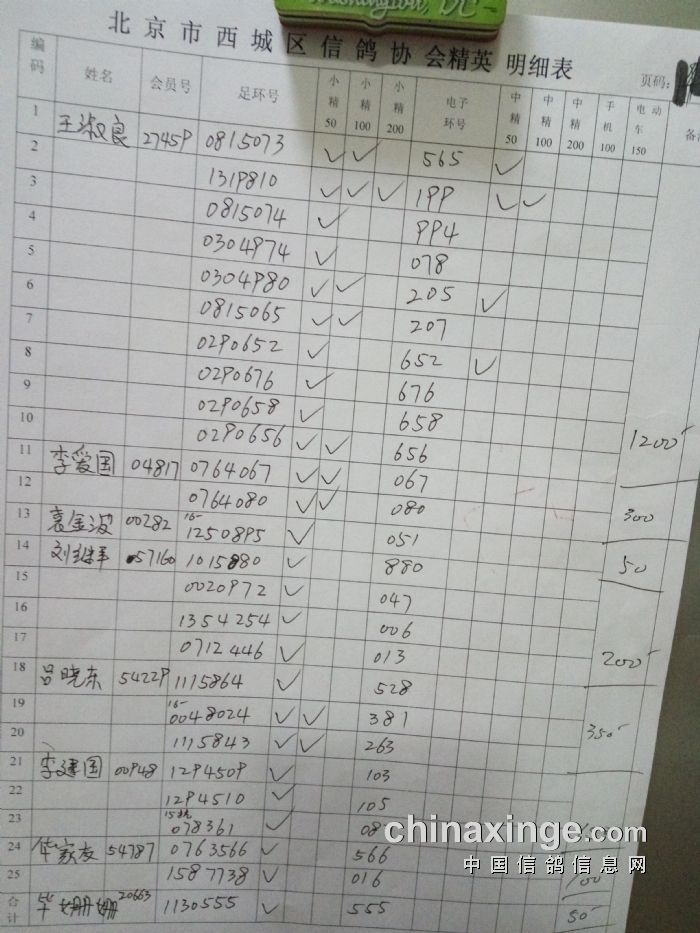 Washington, DC
北京市西城区信鸽协会精英 明细表
页码:
编码 姓名 会员号 足环号 小精50 小精100 小精200 电子环号 中精50 中精100 中精200 手机100 电动车150
1 王淑良 27459 0815073 ✓ ✓ 565 ✓
2 1319810 ✓ ✓ ✓ 199 ✓ ✓
3 0815074 ✓ 994
4 0304974 ✓ 078
5 0304980 ✓ ✓ 205 ✓
6 0815065 ✓ ✓ 207
7 0290652 ✓ 652 ✓
8 0290676 ✓ 676
9 0290658 ✓ 658
10 0290656 ✓ ✓ 656 1200
11 李爱国 04817 0764067 ✓ ✓ 067
12 0764080 ✓ ✓ 080 300
13 袁金波 00282 16- 1250895 ✓ 051 50
14 刘继军 57160 1015880 ✓ 880
15 0020972 ✓ 047
16 1354254 ✓ 006
17 0712446 ✓ 013 200
18 吕晓东 54229 1115864 ✓ 528
19 16- 0048024 ✓ ✓ 381 350
20 1115843 ✓ ✓ 263
21 李建国 00948 1294509 ✓ 103
22 1294510 ✓ 105
23 078361 ✓ 08
24 华家友 54787 0763566 ✓ 566
25 1587738 ✓ 016 100
合计 毕姗姗 20663 1130555 ✓ 555 50
chinaxinge.com
中国信鸽信息网